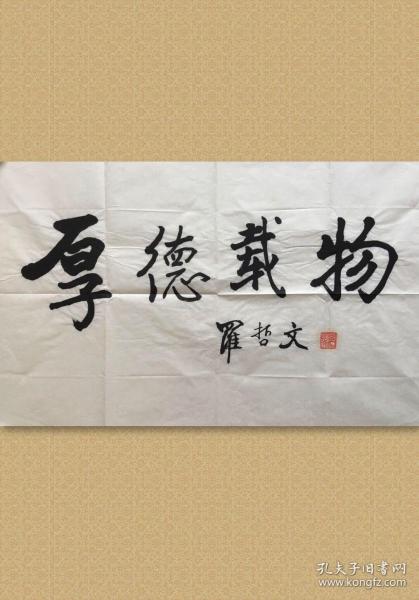 厚德载物
羅哲文
孔夫子旧书网
www.kongfz.com